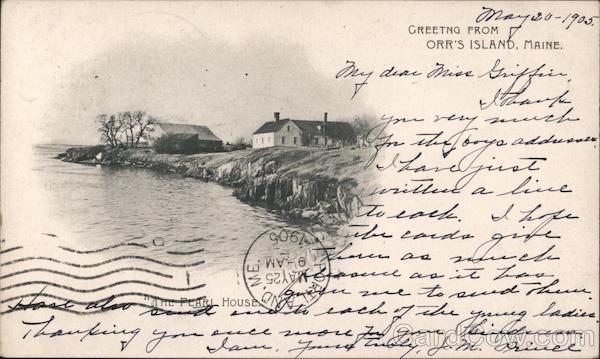 May 20-1905.
GREETNG FROM
ORR'S ISLAND, MAINE.
My dear Miss Griffin,
I thank
you very much
for the boys addresses.
I have just
written a line
to each. I hope
the cards give
them as much
pleasure as it has
given me to send them.
THE PEARL HOUSE.
PORTLAND, ME.
MAY 25
9-AM
1905
also send one to each of the young ladies.
Thanking you once more for your kindness
I am, yours truly,
CardCow.com